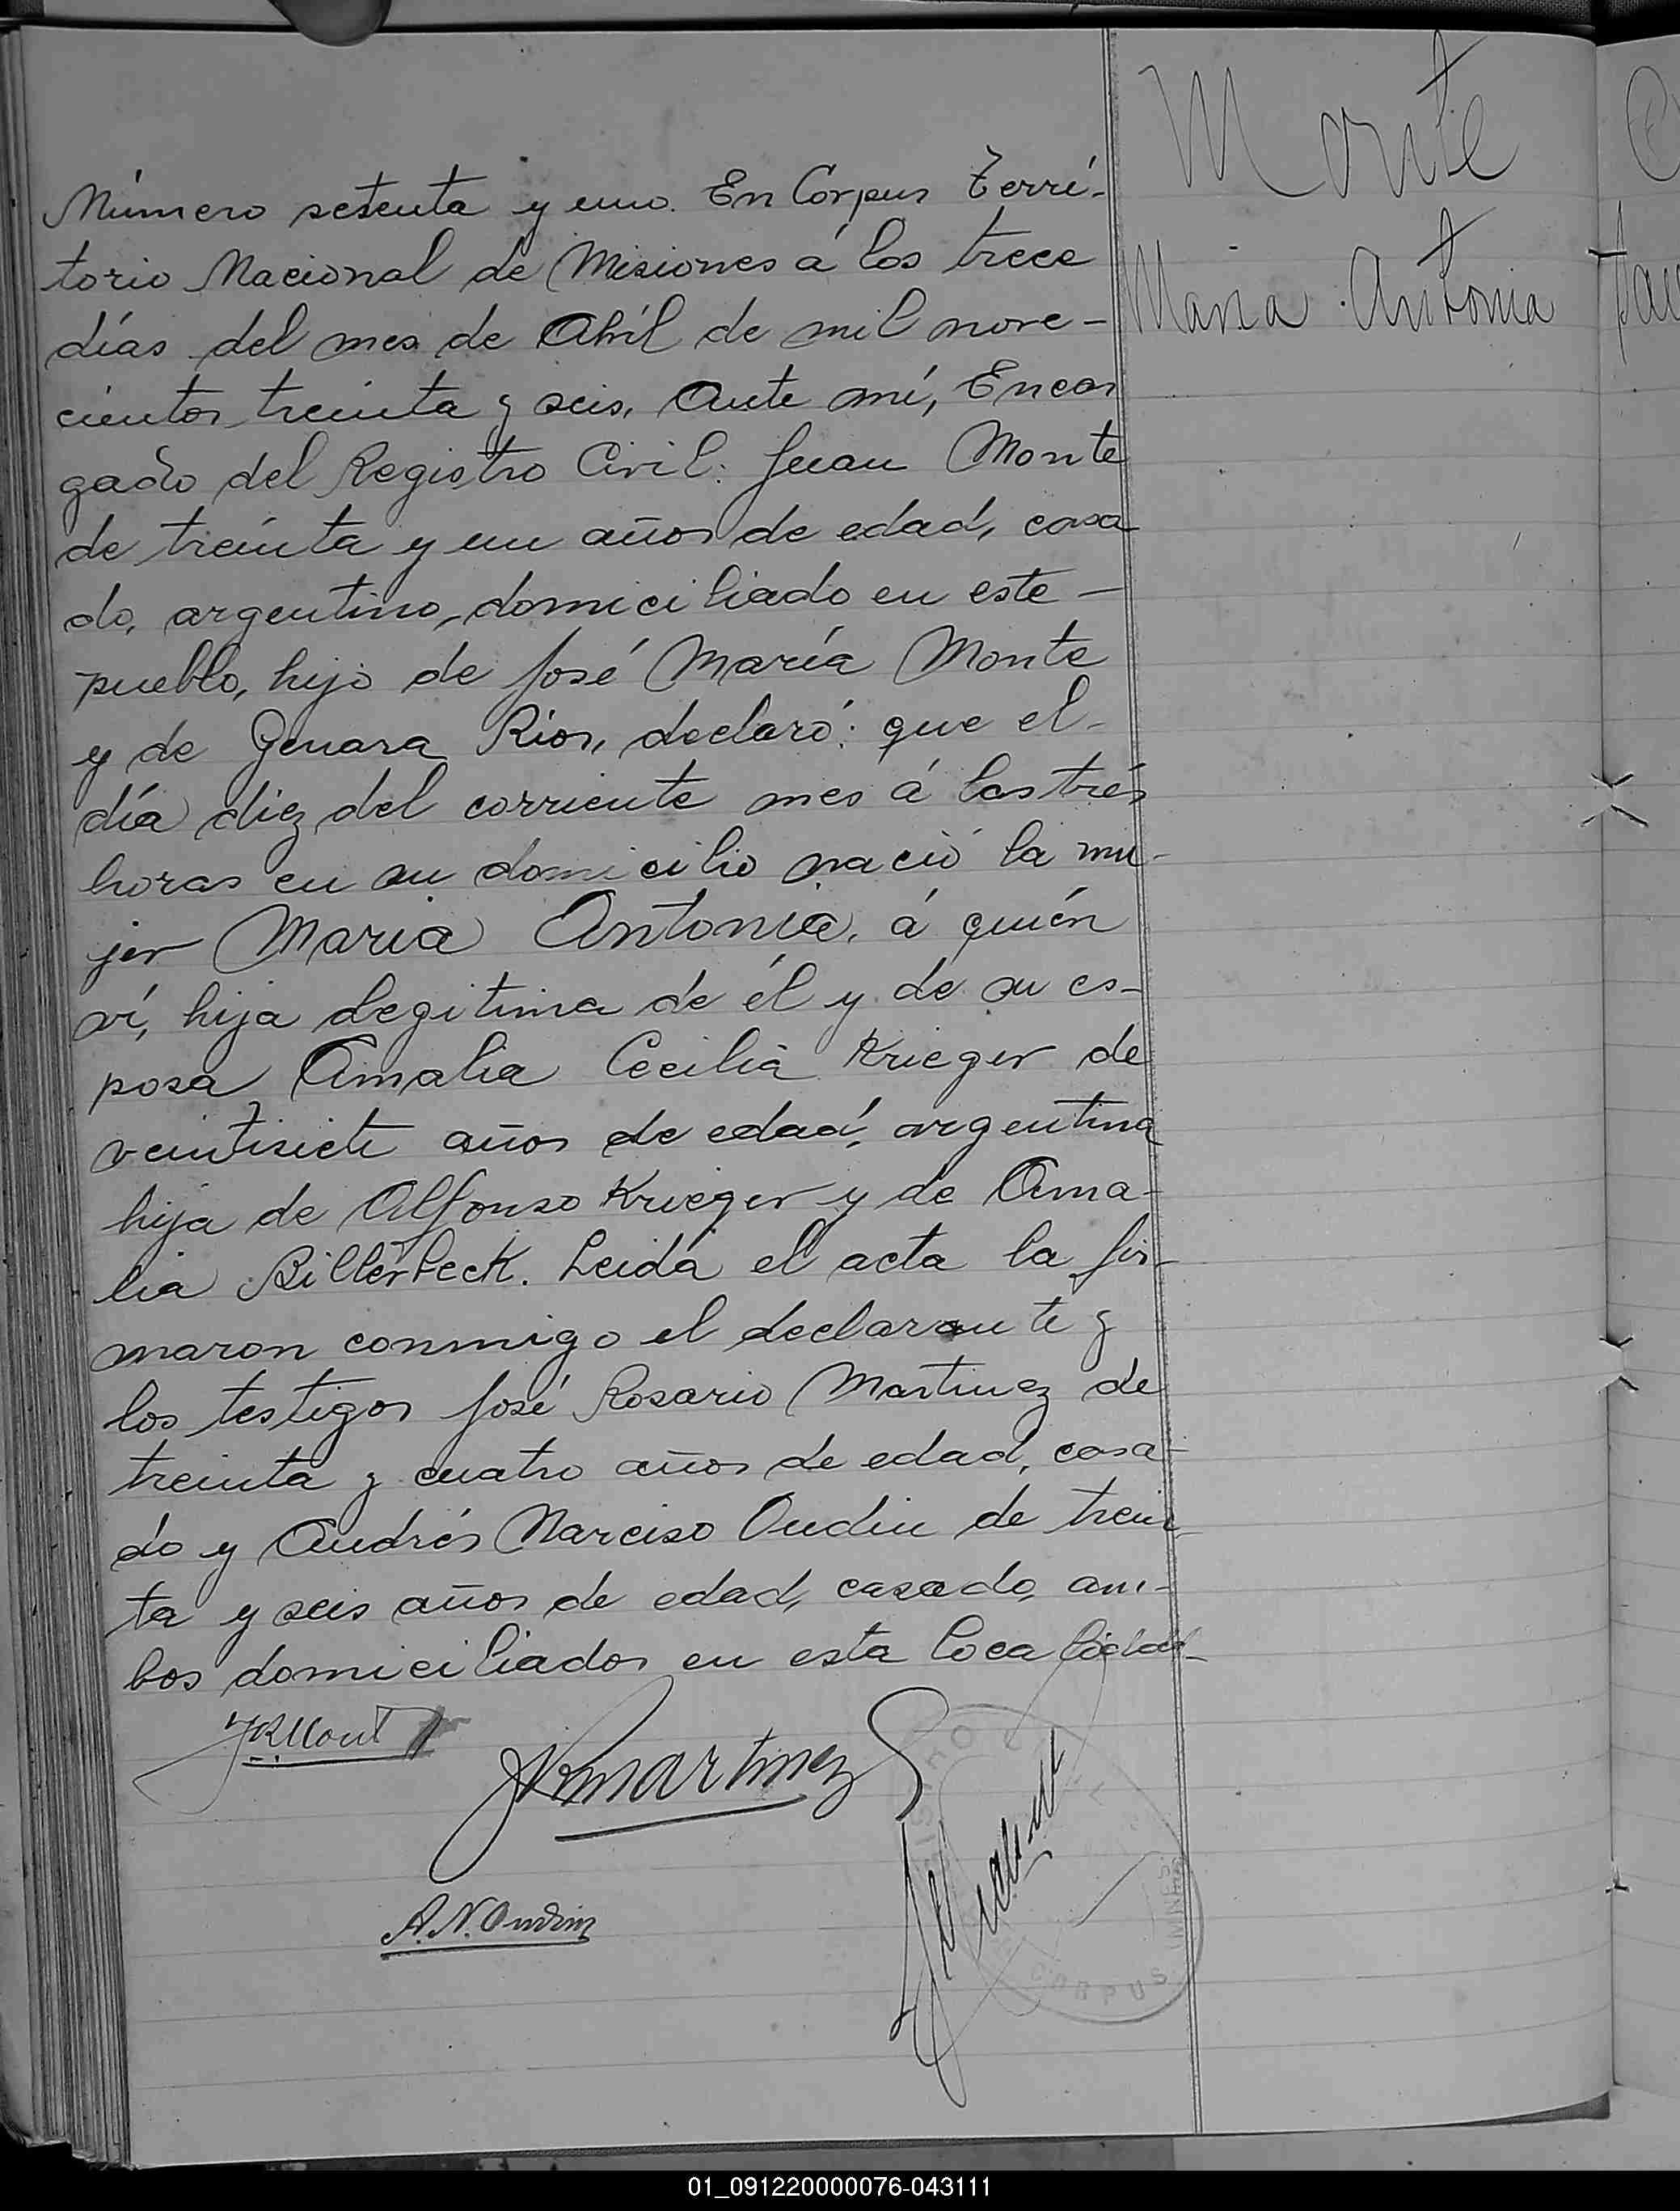 Monte
Maria Antonia
Número setenta y uno. En Córpus Terri-
torio Nacional de Misiones á los trece
días del mes de Abril de mil nove-
cientos treinta y seis, Ante mí, Encar
gado del Registro Civil: Juan Monte
de treinta y un años de edad, casa
do, argentino, domiciliado en este -
pueblo, hijo de José María Monte
y de Genara Rios, declaró: que el-
día diez del corriente mes á las trés
horas en su domicilio nació la mu-
jer Maria Antonia, á quién
ví, hija legitima de él y de su es-
posa Amalia Cecilia Krieger de
veintisiete años de edad, argentina
hija de Alfonso Krieger y de Ama-
lia Billerbeck. Leida el acta la fir-
maron conmigo el declarante y
los testigos José Rosario Martinez de
treinta y cuatro años de edad, casa-
do y Andrés Narciso Oudin de trein
ta y seis años de edad, casado, am-
bos domiciliados en esta localidad-
JRMartinez
A. N. Oudin
CORPUS
01_091220000076-043111